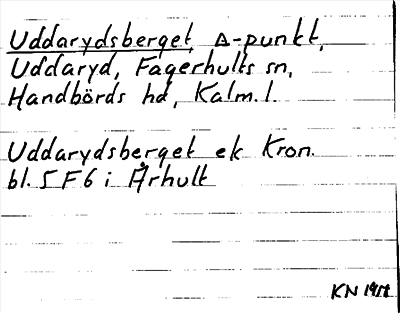 Uddarydsberget, Δ-punkt,
Uddaryd, Fagerhults sn,
Handbörds hd, Kalm. l.
Uddarydsberget ek Kron.
bl. 5 F 6 i Århult
KN